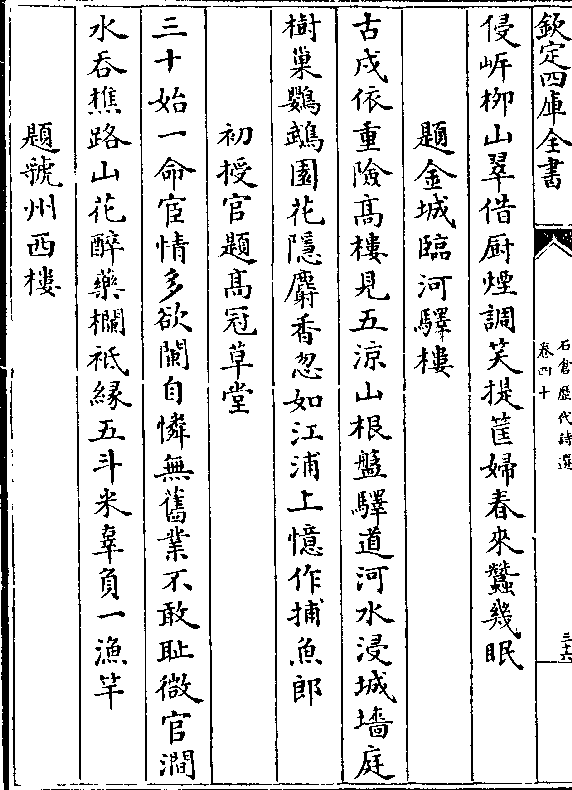 欽定四庫全書
石倉歷代詩選
卷四十
三十六
侵岍栁山翠借厨煙調笑提筐婦春來蠶幾眠
題金城臨河驛樓
古戍依重險髙樓見五涼山根盤驛道河水浸城墻庭
樹巢鸚鵡園花隱麝香忽如江浦上憶作捕魚郎
初授官題髙冠草堂
三十始一命宦情多欲闌自憐無舊業不敢恥微官澗
水吞樵路山花醉藥欄祗縁五斗米辜負一漁竿
題虢州西樓